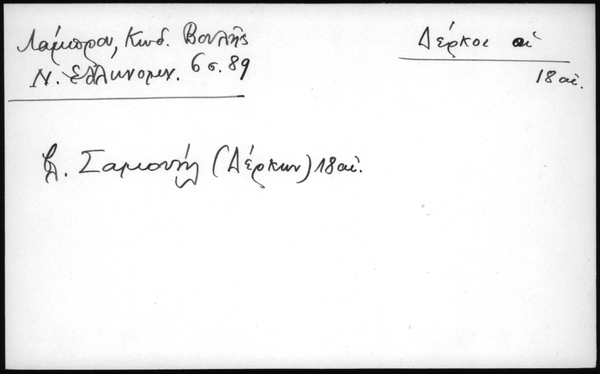 Λάμπρου, Κωδ. Βουλῆς
Ν. Ἑλληνομν. 6 σ. 89
Δέρκοι αἱ
18 αἰ.
βλ. Σαμουήλ (Δέρκων) 18 αἰ.